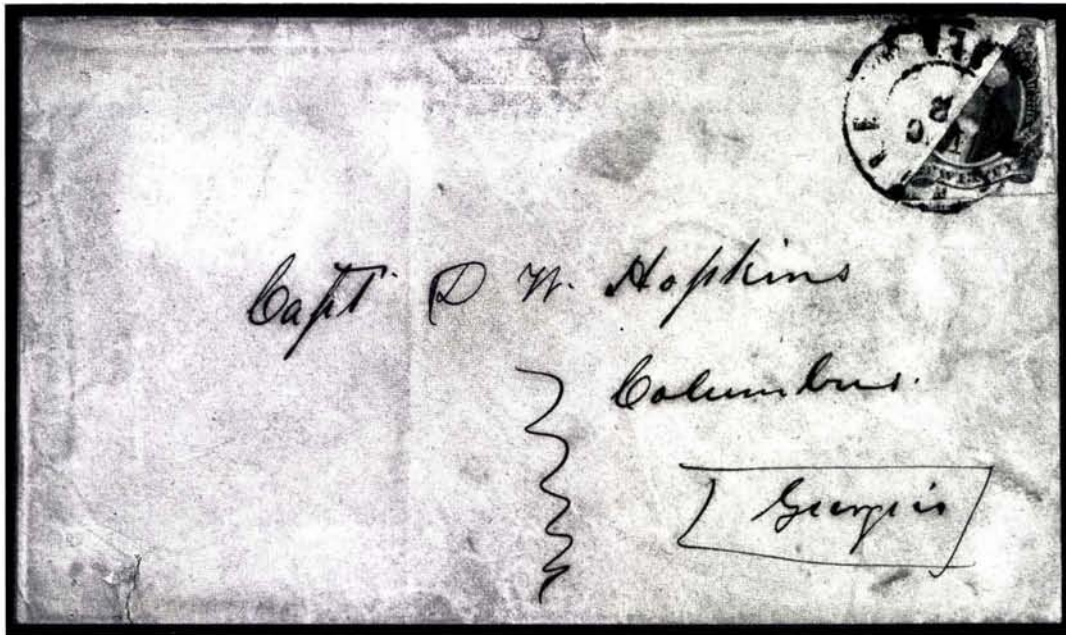 Capt D W. Hopkins
Columbus.
Georgia